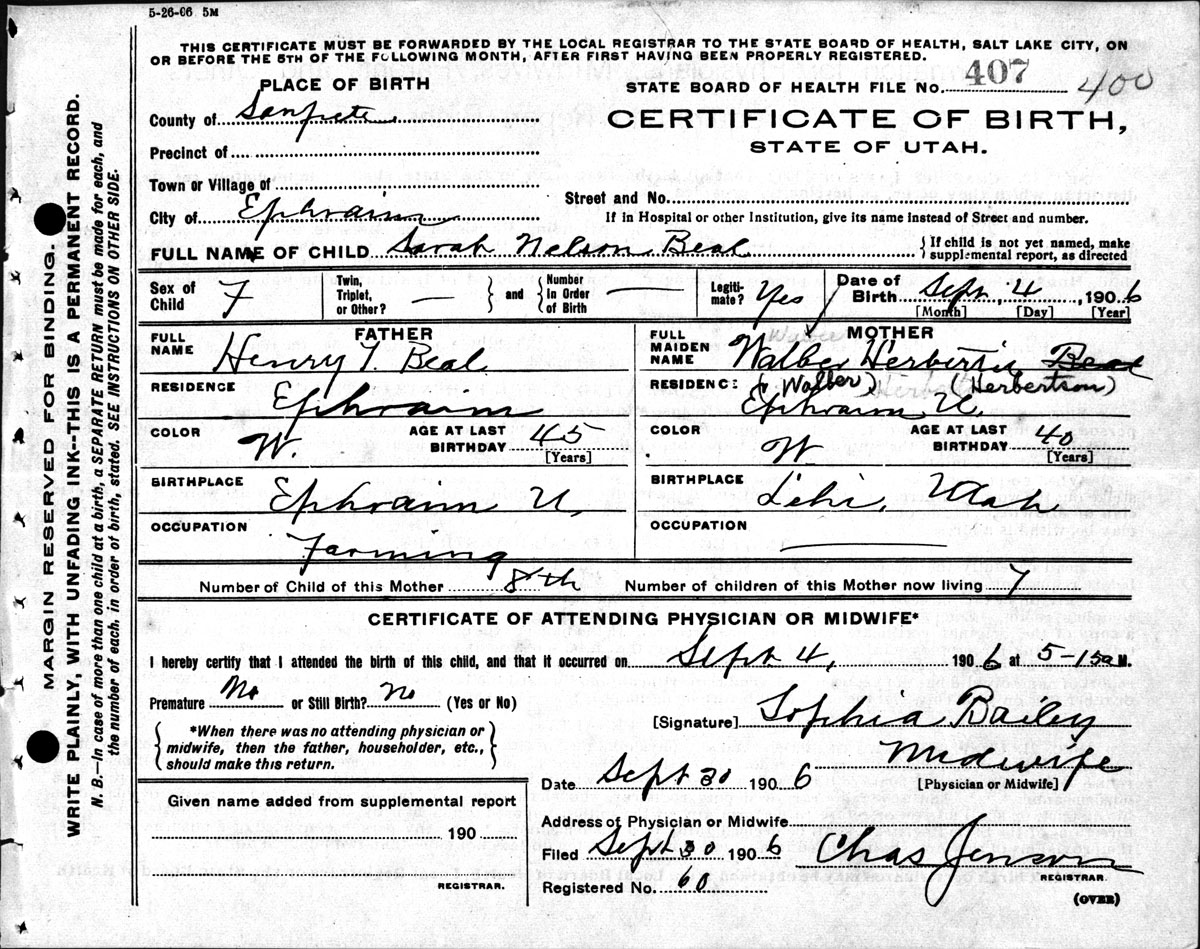 5-26-06 5M
THIS CERTIFICATE MUST BE FORWARDED BY THE LOCAL REGISTRAR TO THE STATE BOARD OF HEALTH, SALT LAKE CITY, ON
OR BEFORE THE 5TH OF THE FOLLOWING MONTH, AFTER FIRST HAVING BEEN PROPERLY REGISTERED.
PLACE OF BIRTH
STATE BOARD OF HEALTH FILE No. 407 400
County of Sanpete
CERTIFICATE OF BIRTH,
STATE OF UTAH.
Precinct of
Town or Village of
Street and No.
City of Ephraim
If in Hospital or other Institution, give its name instead of Street and number.
FULL NAME OF CHILD Sarah Nelson Beal
If child is not yet named, make
supplemental report, as directed
Sex of Child F
Twin, Triplet, or Other? — and Number in Order of Birth —
Legiti-mate? Yes
Date of Birth Sept. 4, 1906
[Month] [Day] [Year]
FATHER
FULL NAME Henry T. Beal
RESIDENCE
Ephraim
COLOR W. AGE AT LAST BIRTHDAY 45
[Years]
BIRTHPLACE
Ephraim U.
OCCUPATION
Farming
MOTHER
FULL MAIDEN NAME Walber Herbertie Beal
RESIDENCE (Walber) (Herbertson)
Ephraim U.
COLOR W AGE AT LAST BIRTHDAY 40
[Years]
BIRTHPLACE
Lehi, Utah
OCCUPATION
Number of Child of this Mother 8th Number of children of this Mother now living 7
CERTIFICATE OF ATTENDING PHYSICIAN OR MIDWIFE*
I hereby certify that I attended the birth of this child, and that it occurred on Sept 4, 1906 at 5-15a M.
Premature No or Still Birth? No (Yes or No)
[Signature] Sophia Bailey
*When there was no attending physician or
midwife, then the father, householder, etc.,
should make this return.
Midwife
[Physician or Midwife]
Date Sept 30 1906
Given name added from supplemental report
190
REGISTRAR.
Address of Physician or Midwife
Filed Sept 30 1906 Chas Jenson
REGISTRAR.
Registered No. 60
(OVER)
MARGIN RESERVED FOR BINDING.
WRITE PLAINLY, WITH UNFADING INK--THIS IS A PERMANENT RECORD.
N. B.—In case of more than one child at a birth, a SEPARATE RETURN must be made for each, and
the number of each, in order of birth, stated. SEE INSTRUCTIONS ON OTHER SIDE.